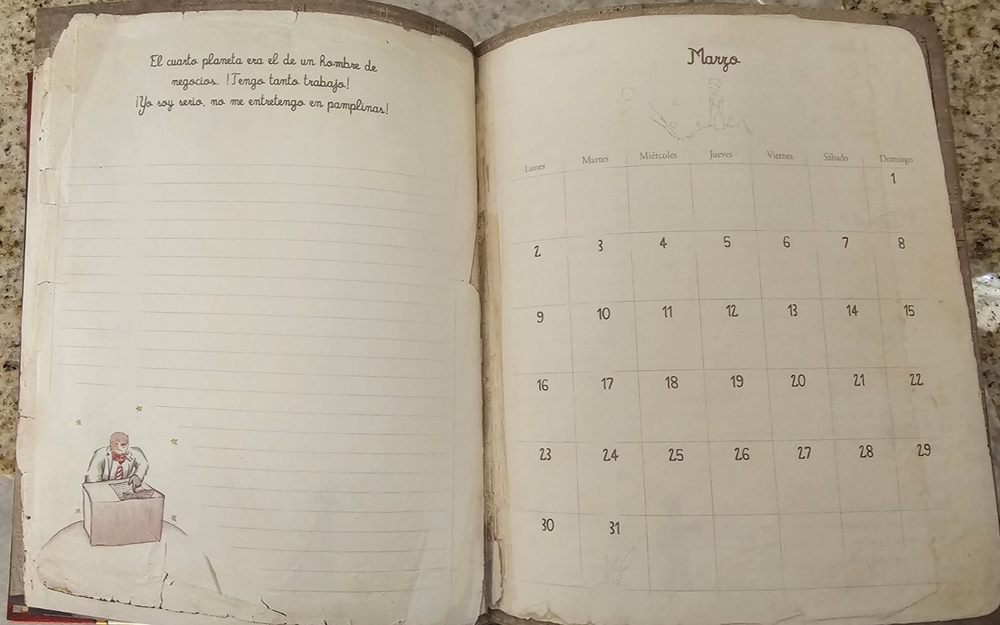 El cuarto planeta era el de un hombre de
negocios. !Tengo tanto trabajo!
¡Yo soy serio, no me entretengo en pamplinas!
Marzo
Lunes Martes Miércoles Jueves Viernes Sábado Domingo
1
2 3 4 5 6 7 8
9 10 11 12 13 14 15
16 17 18 19 20 21 22
23 24 25 26 27 28 29
30 31